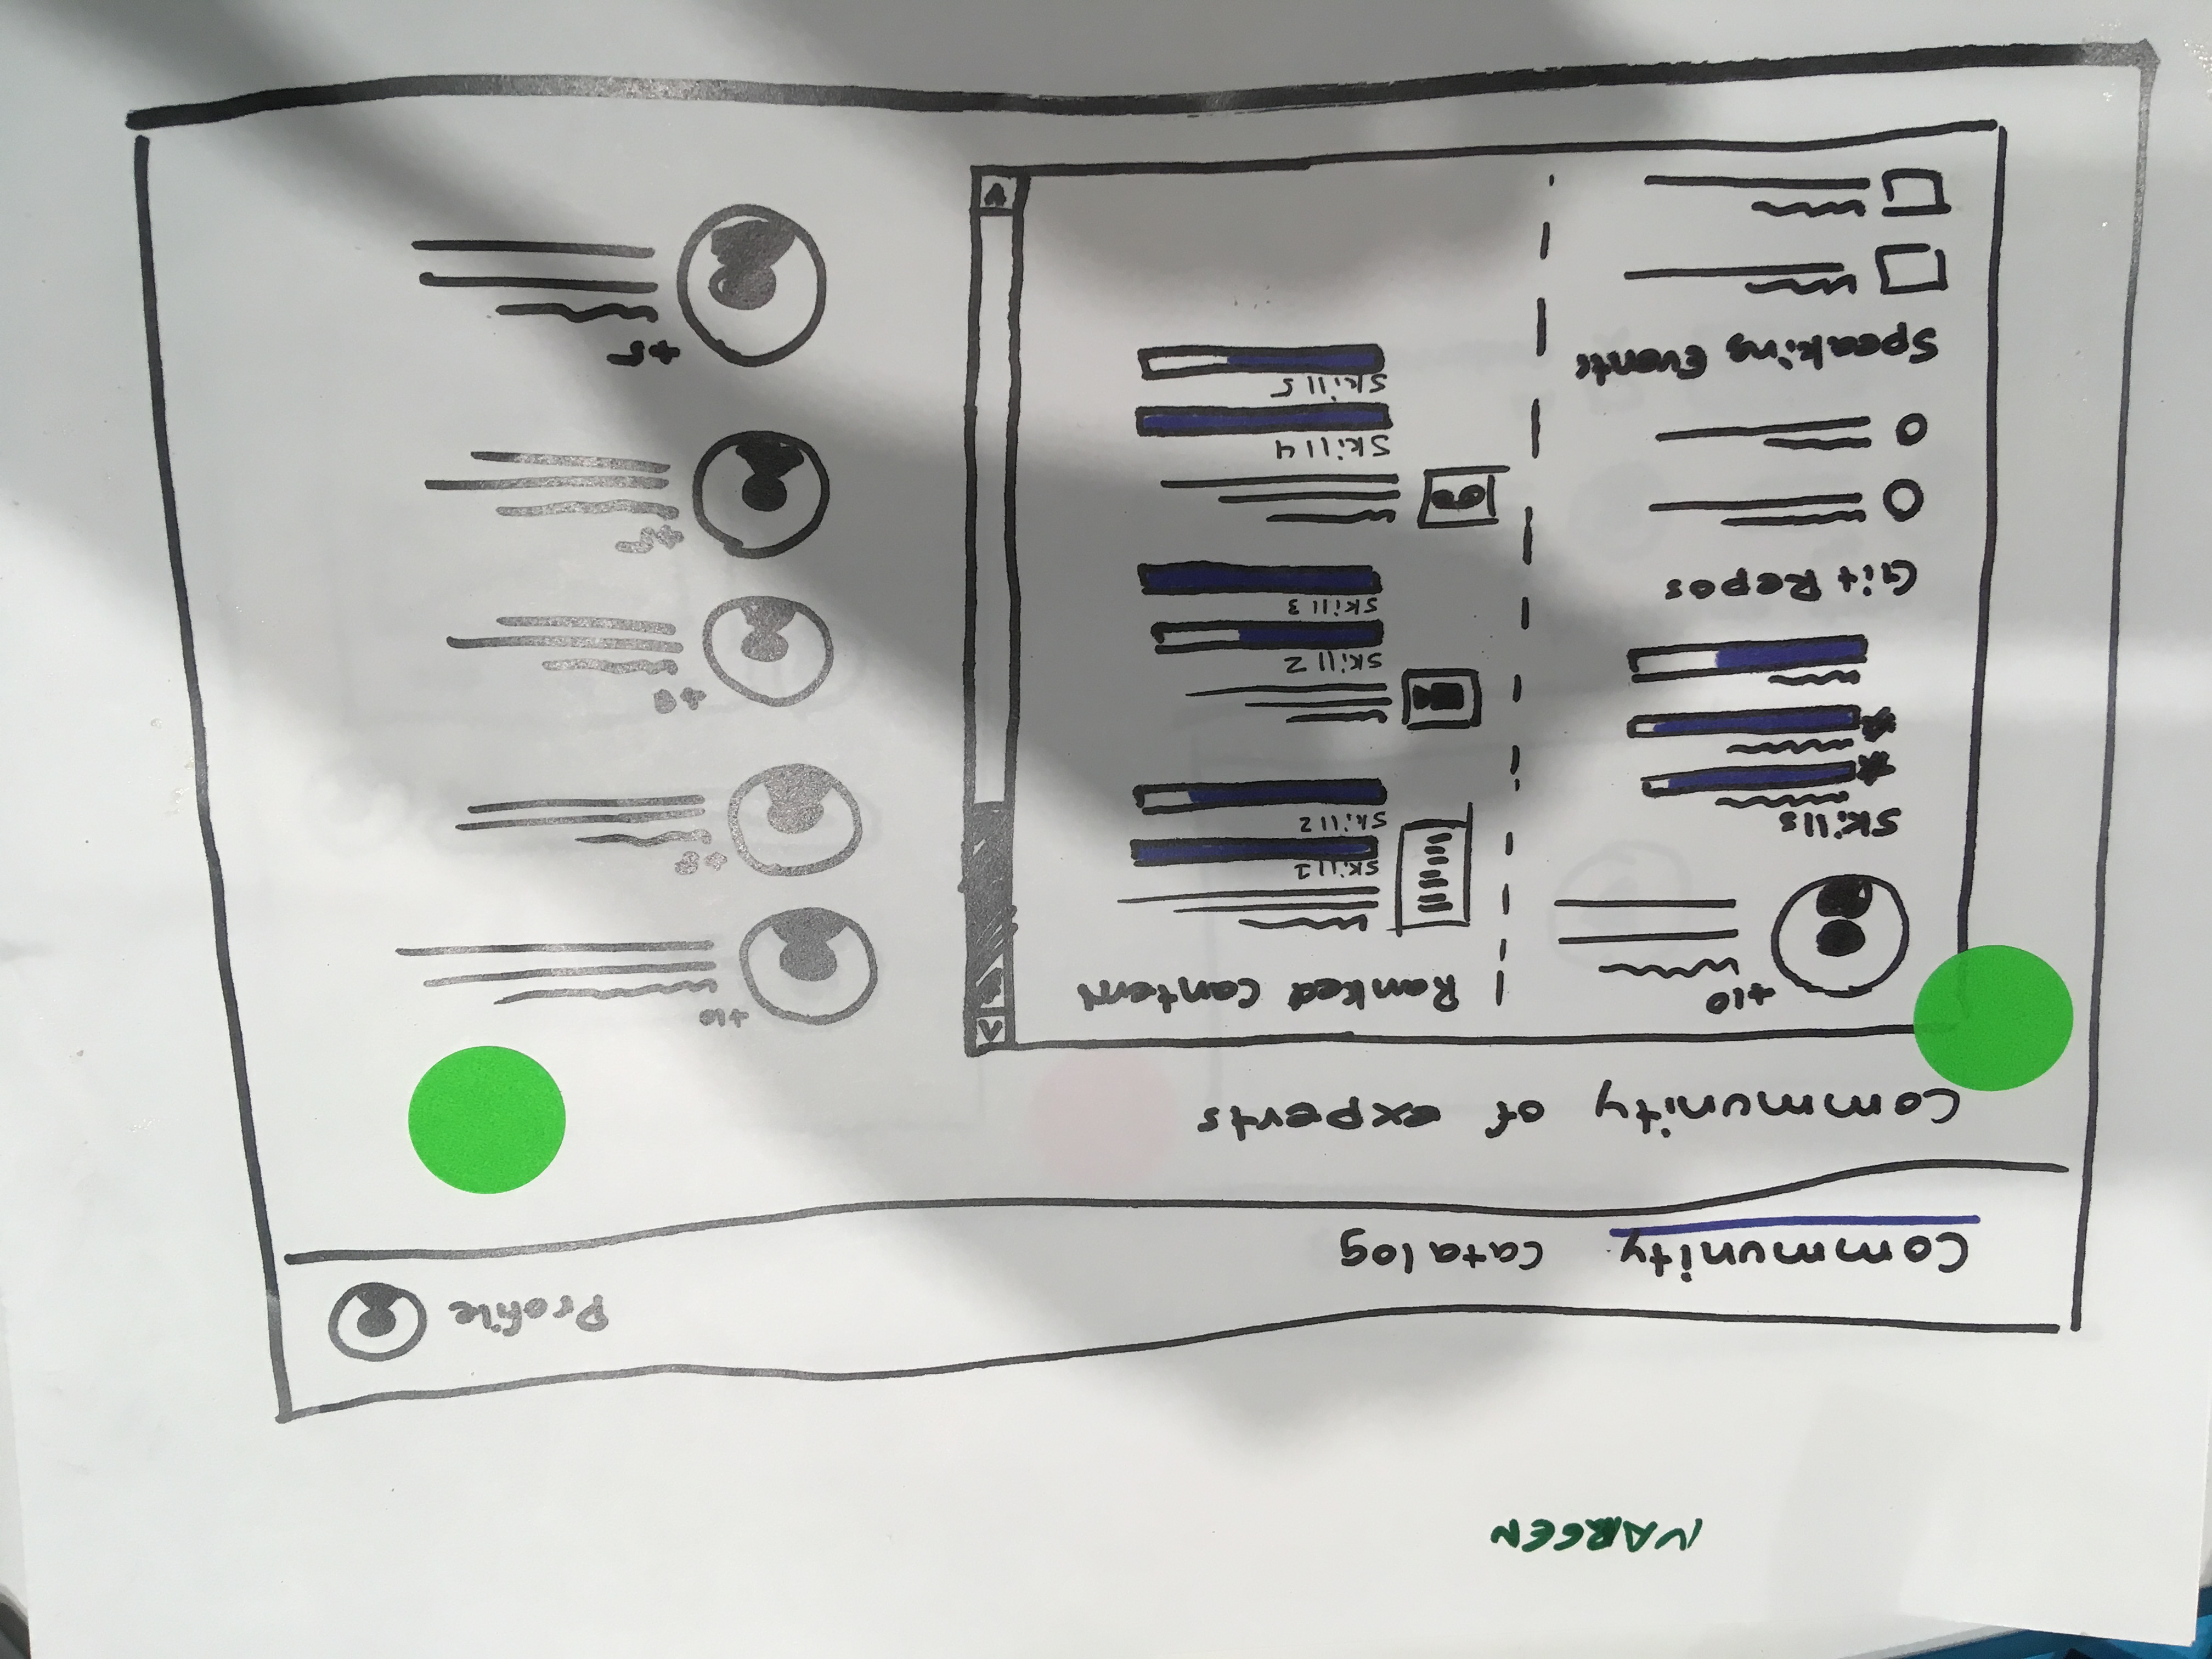 NARGEN
Community Catalog Profile
Community of experts
+10
Skills
Git Repos
Speaking Events
Ranked Content
Skill 1
Skill 2
Skill 2
Skill 3
Skill 4
Skill 5
+10
+8
+5